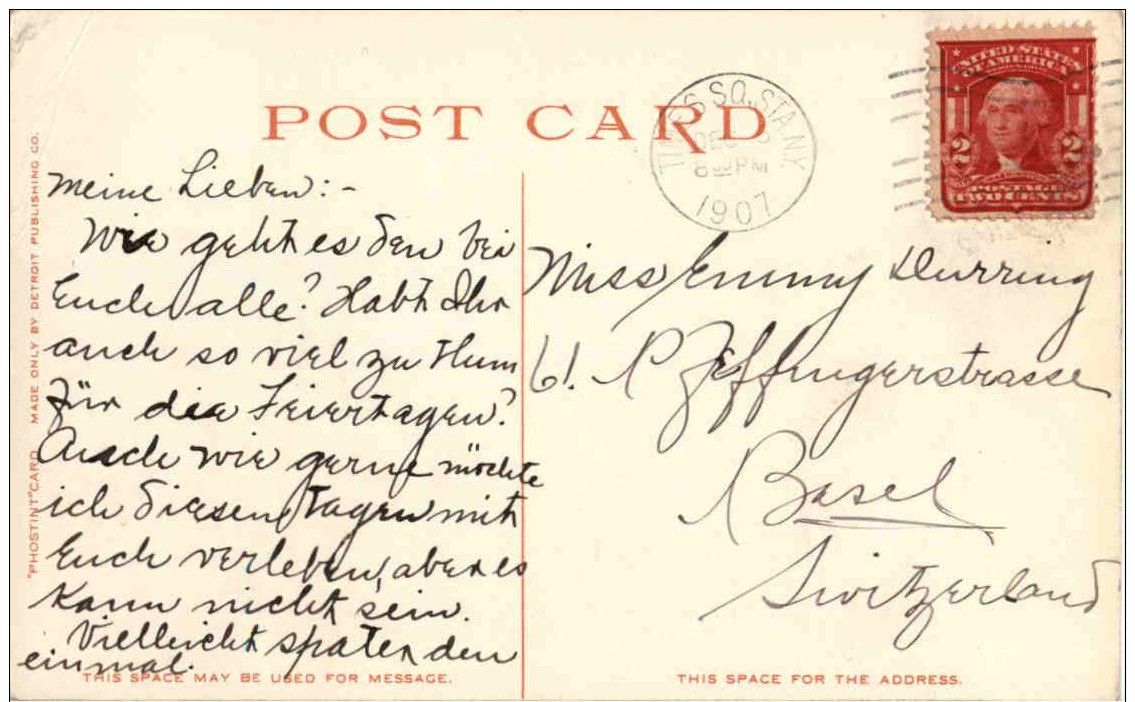 POST CARD
TIMES SQ. STA. N.Y.
DEC
8 30 PM
1907
UNITED STATES
OF AMERICA
2 2
POSTAGE
TWO CENTS
"PHOSTINT" CARD MADE ONLY BY DETROIT PUBLISHING CO.
Meine Lieben:-
Wie geht es den bei
Euch alle? Habt Ihr
auch so viel zu thum
für die Feiertagen?
Auch wie gerne möchte
ich diesen Tagen mit
Euch verleben, aber es
kann nicht sein.
Vielleicht spater den
einmal.
THIS SPACE MAY BE USED FOR MESSAGE.
Miss Emmy Durring
61. Pfeffingerstrasse
Basel
Switzerland
THIS SPACE FOR THE ADDRESS.